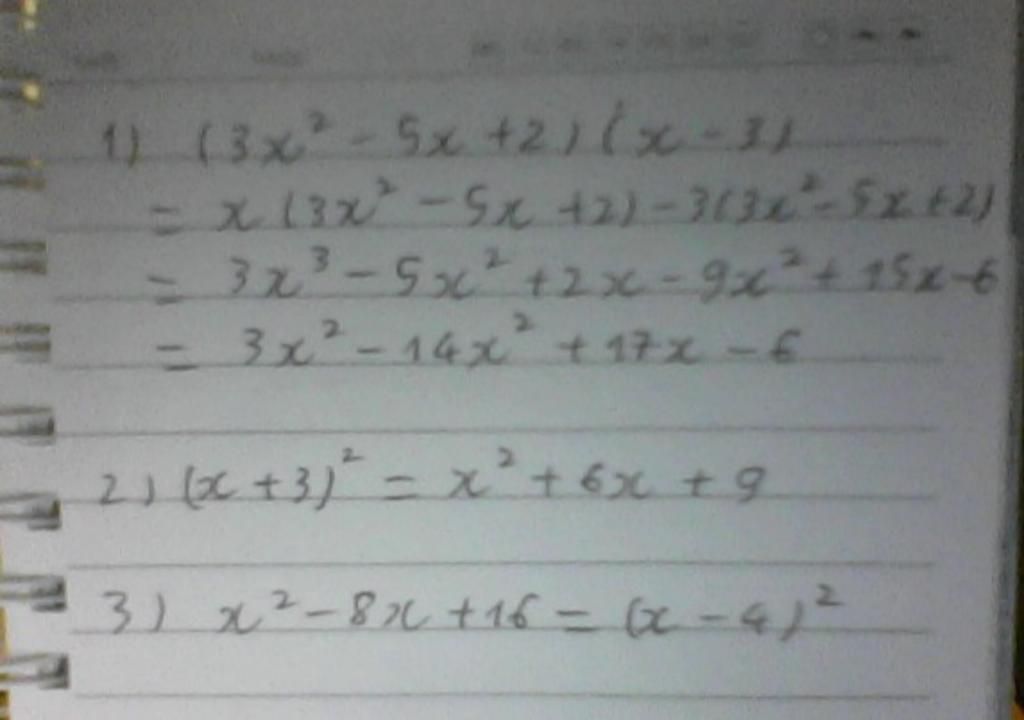 1) (3x² - 5x +2) (x - 3)
= x (3x² - 5x +2) - 3(3x² - 5x +2)
= 3x³ - 5x² + 2x - 9x² + 15x - 6
= 3x² - 14x² + 17x - 6
2) (x + 3)² = x² + 6x + 9
3) x² - 8x + 16 = (x - 4)²